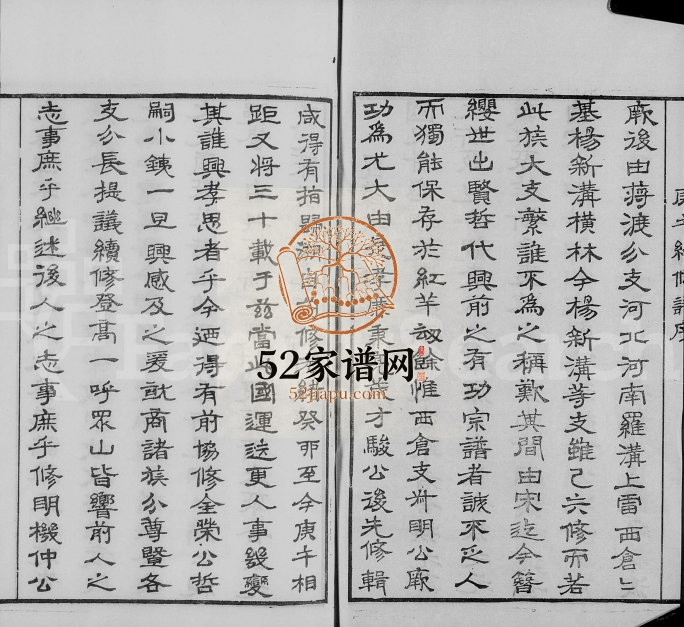 庚午續修譜序
厥後由蔣渡分支河北河南羅溝上雷西倉上
基楊新溝橫林今楊新溝等支雖已六修而若
此族大支繁誰不為之稱歎其間由宋迄今簪
纓世出賢哲代興前之有功宗譜者誠不乏人
而獨能保存於紅羊劫餘惟西倉支 明公厥
功為尤大由是孝廣秉 才駿公後先修輯
咸得有指歸 自 修 癸卯至今庚午相
距又將三十載于茲當此國運迭更人事幾變
其誰興孝思者乎今迺得有前協修全榮公哲
嗣小鉄一旦興感及之爰就商諸族分尊暨各
支分長提議續修登高一呼眾山皆響前人之
志事庶乎繼述後人之志事庶乎修明機仲公
52家谱网
52jiapu.com